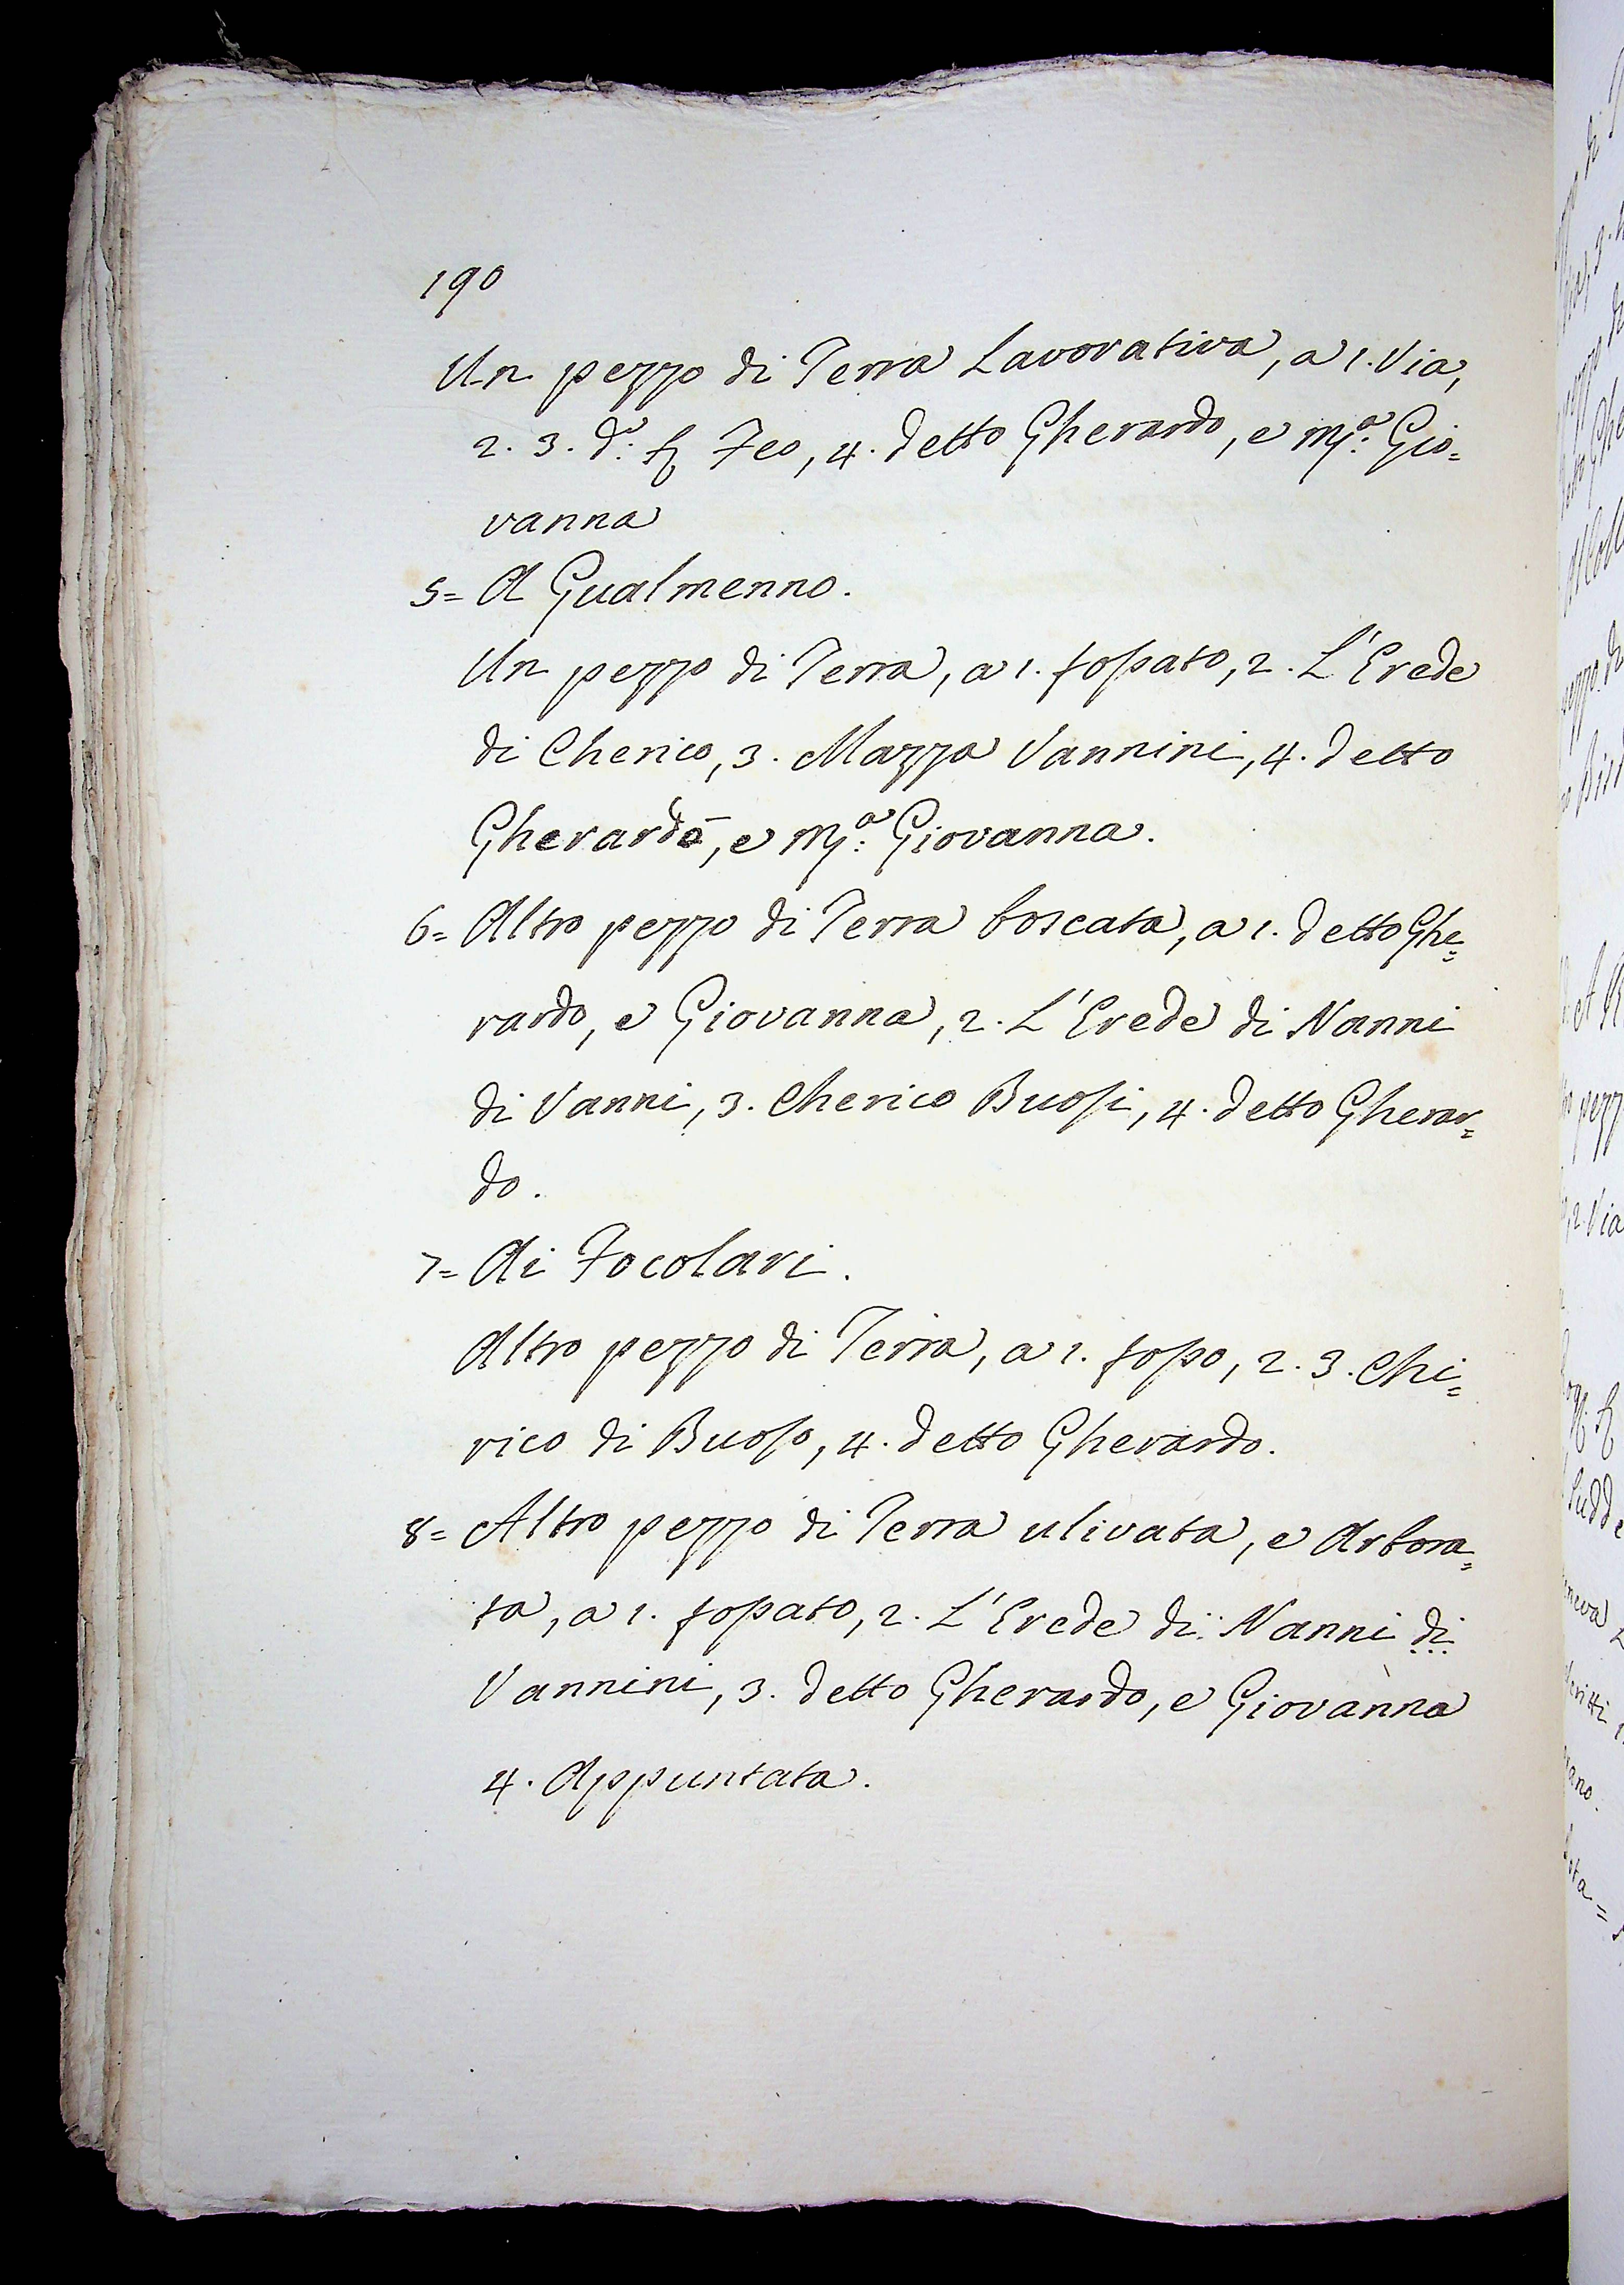 190
Un pezzo di Terra Lavorativa, a 1. Via,
2. 3. d.º Feo, 4. detto Gherardo, e M.ª Gio=
vanna
5= A Gualmenno.
Un pezzo di Terra, a 1. fossato, 2. L'Erede
di Cherico, 3. Mazza Vannini, 4. detto
Gherardo, e M.ª Giovanna.
6= Altro pezzo di Terra boscata, a 1. detto Ghe=
rardo, e Giovanna, 2. L'Erede di Nanni
di Vanni, 3. Cherico Buosi, 4. detto Gherar=
do.
7= Ai Focolari.
Altro pezzo di Terra, a 1. fosso, 2. 3. Chi=
rico di Buoso, 4. detto Gherardo.
8= Altro pezzo di Terra ulivata, e Arbora=
ta, a 1. fossato, 2. L'Erede di Nanni di
Vannini, 3. detto Gherardo, e Giovanna
4. Appuntata.